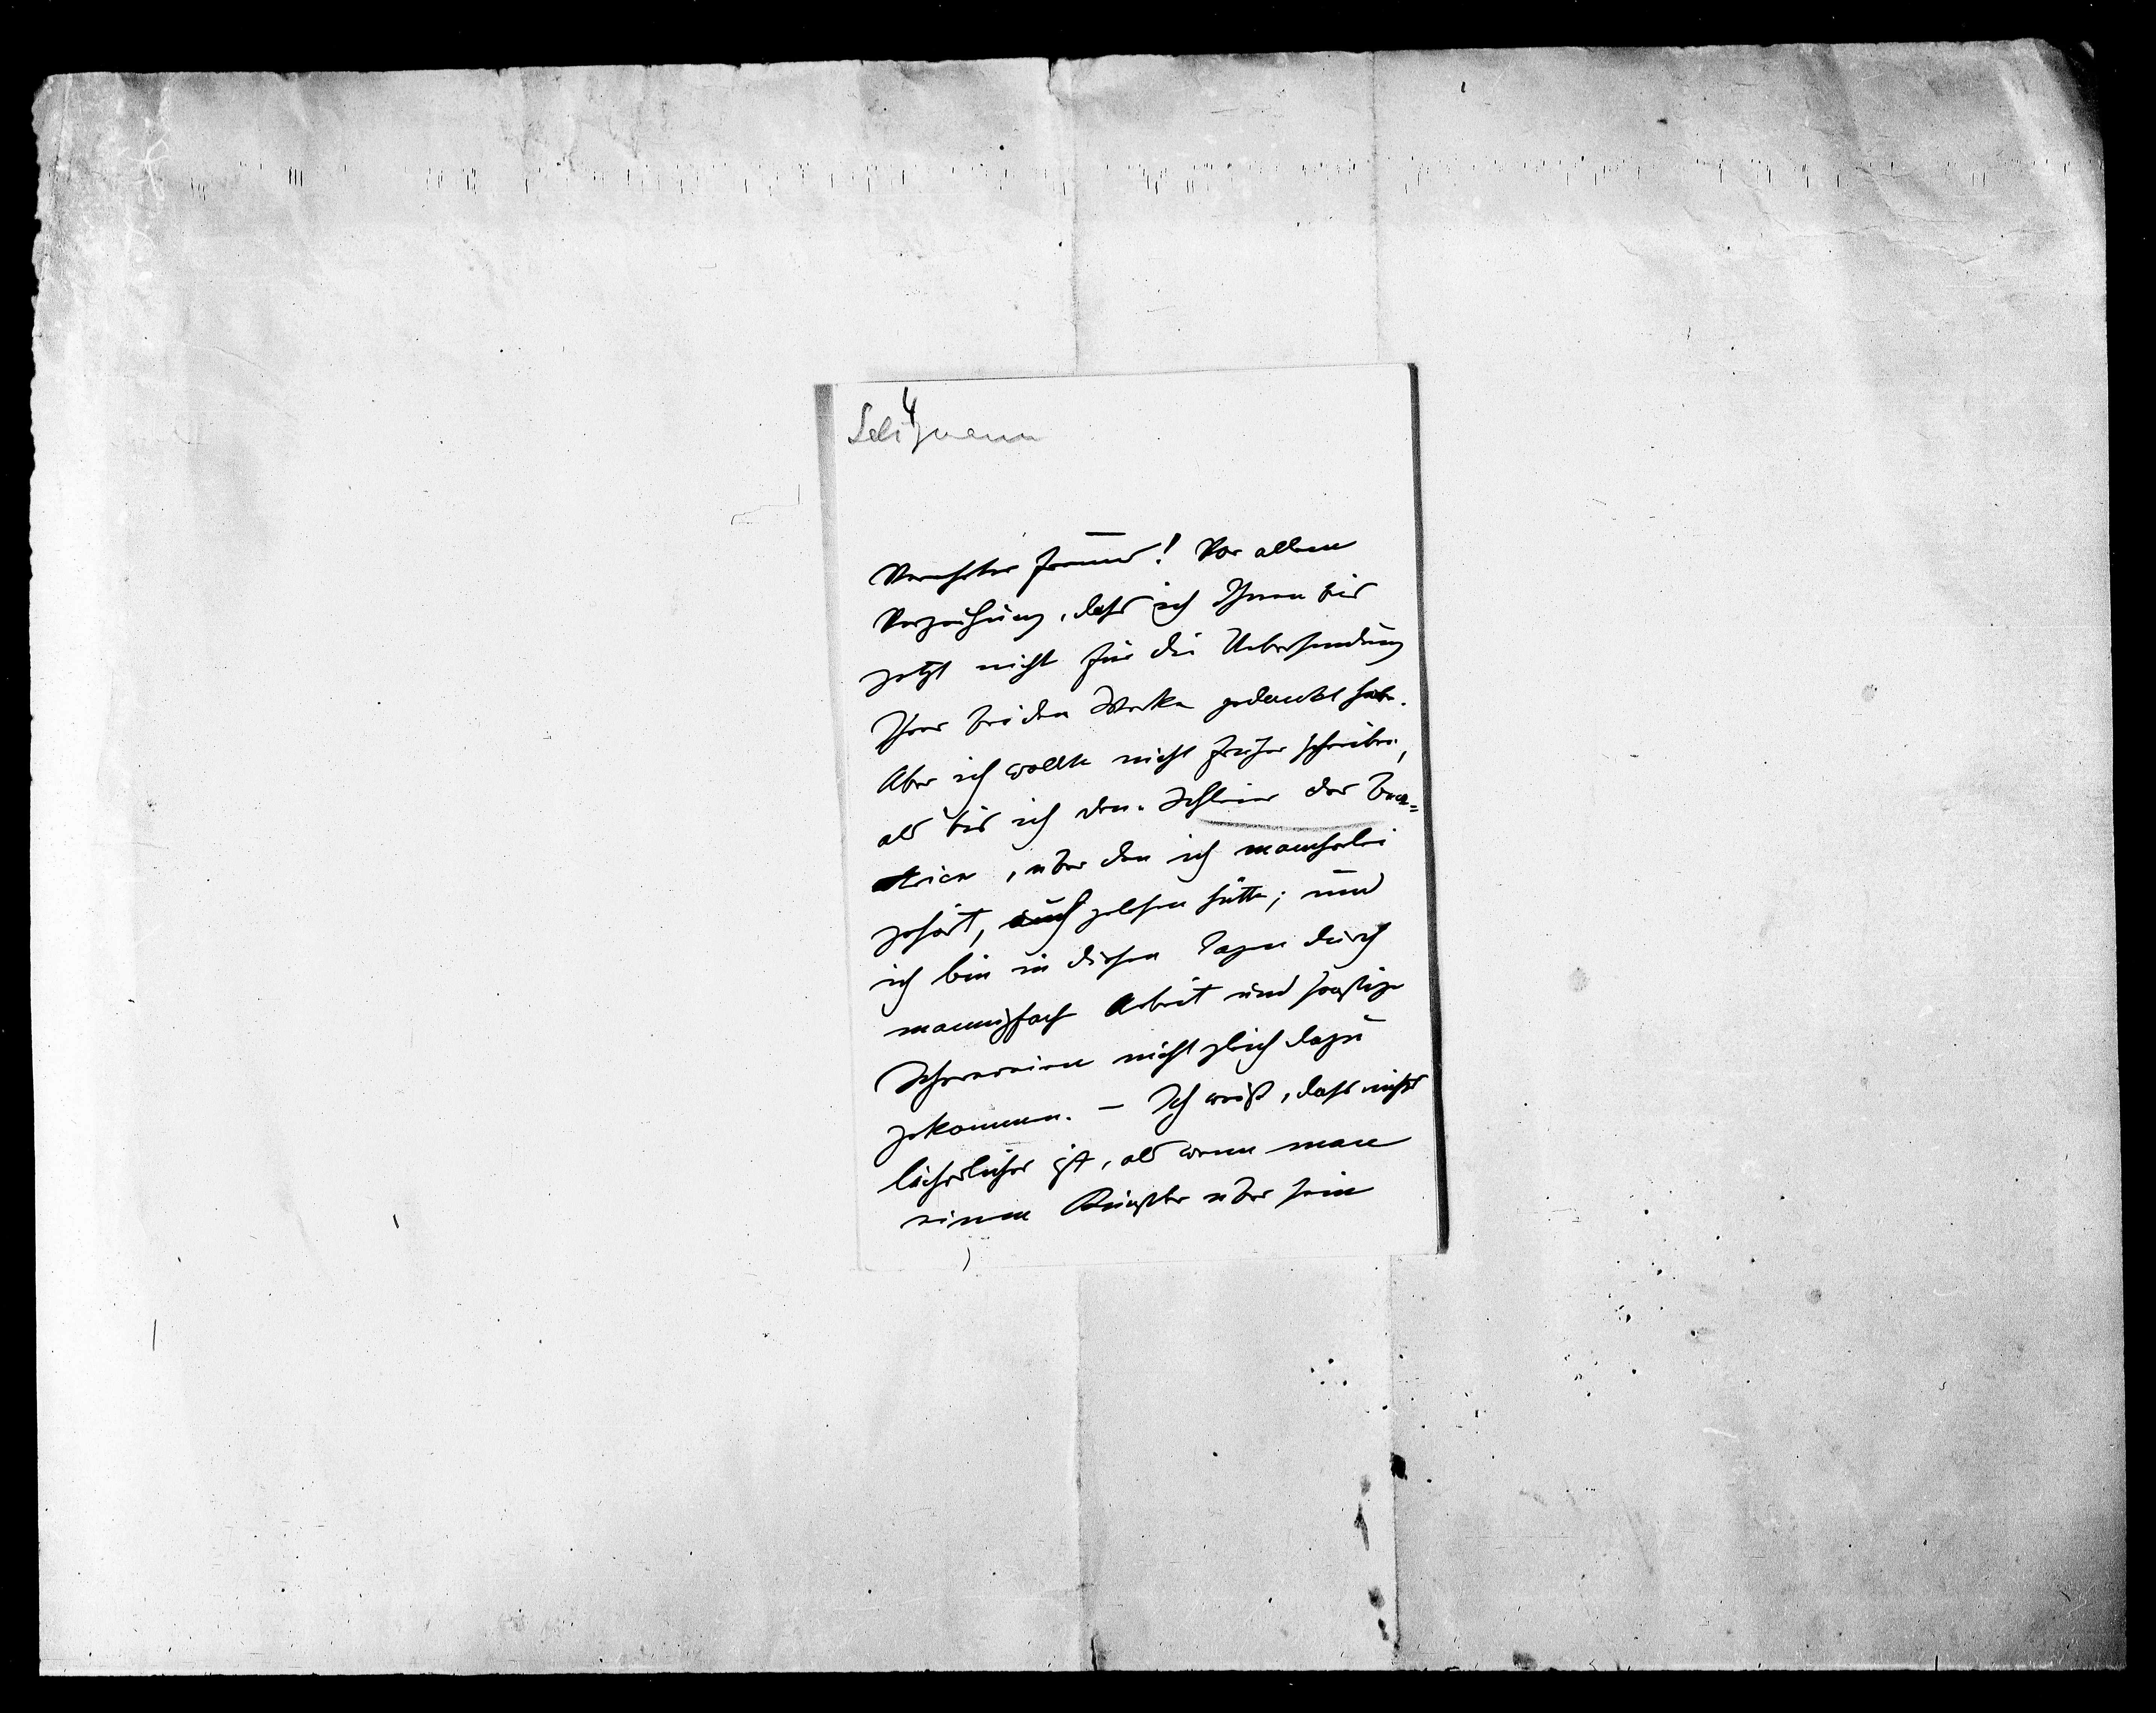 4
Seligmann
Verehrter Freund! Vor allem
Verzeihung, dass ich Ihnen bis
jetzt nicht für die Uebersendung
Ihrer beiden Werke gedankt habe.
Aber ich wollte nicht früher schreiben,
als bis ich den Schleier der Bea=
trice, über den ich mancherlei
gehört, auch gelesen hätte; und
ich bin in diesen Tagen durch
mannigfach Arbeit und sonstige
nicht gleich dazu
gekommen. – Ich weiß, dass nichts
lächerlicher ist, als wenn man
einem Künstler über sein